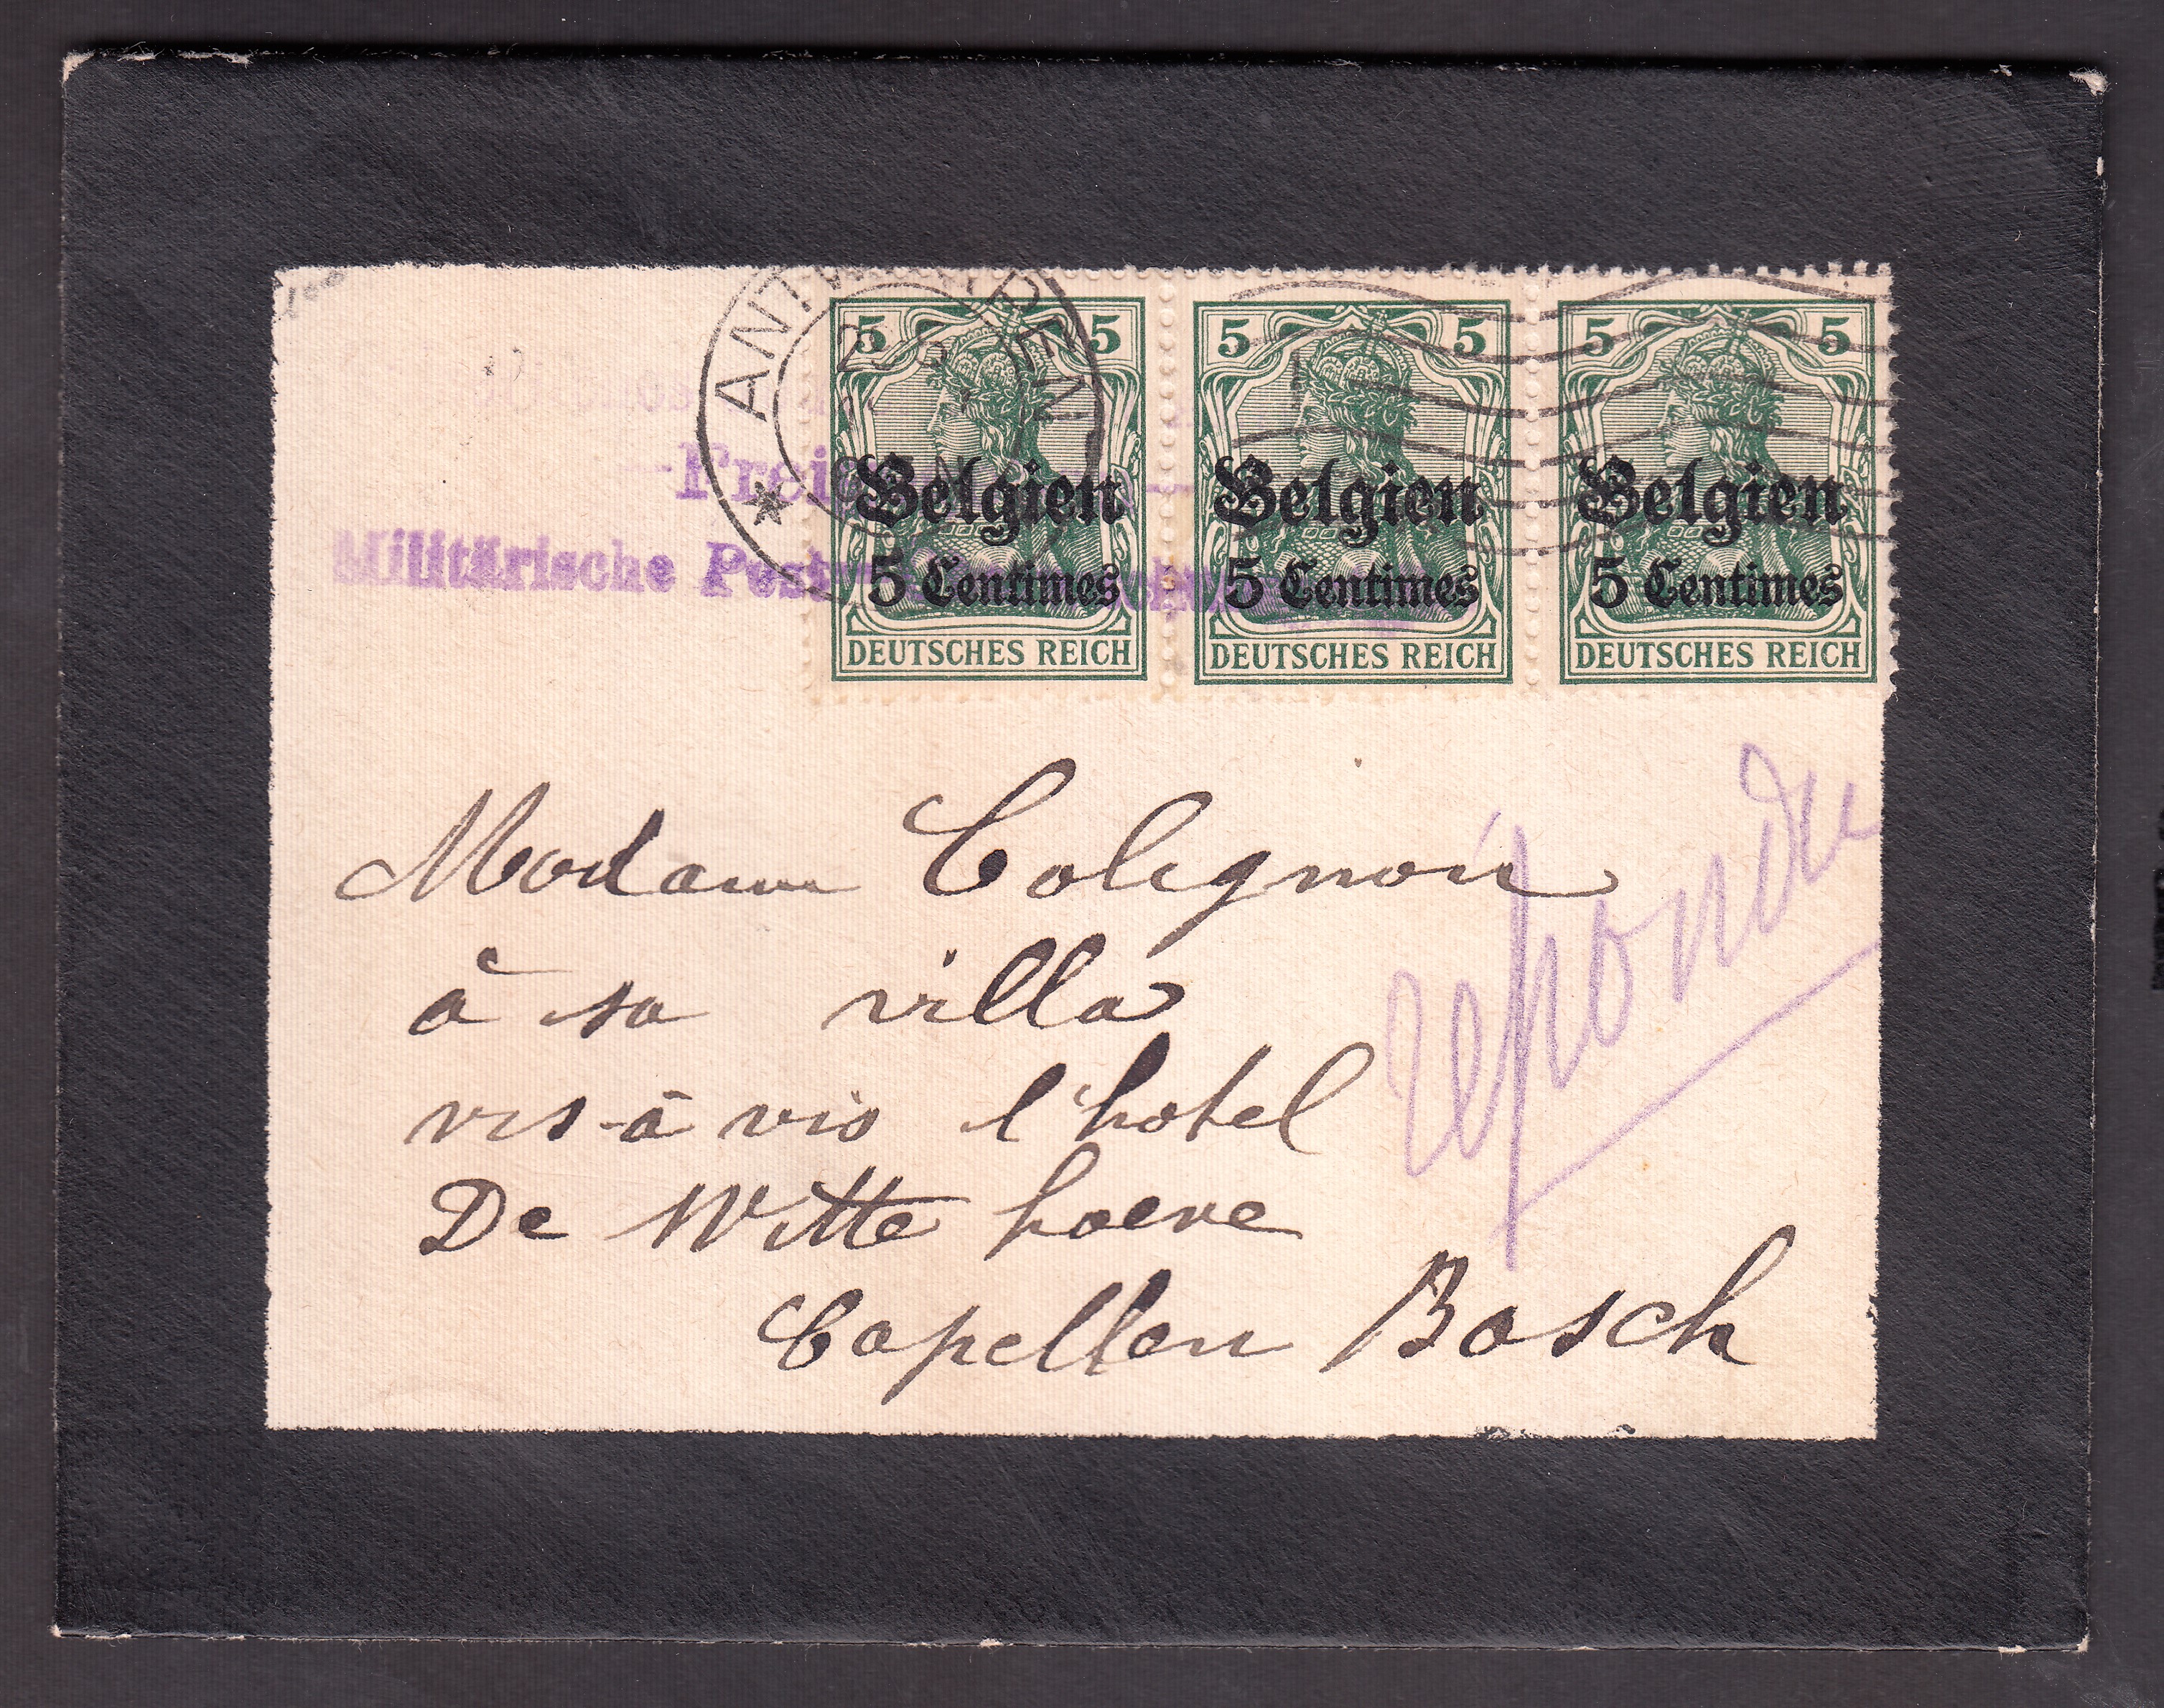 ANTWERPEN
5 5
5 5
5 5
Belgien
Belgien
Belgien
5 Centimes
5 Centimes
5 Centimes
DEUTSCHES REICH
DEUTSCHES REICH
DEUTSCHES REICH
Militärische
Madame Colignon
à sa villa
vis-à vis l'hotel
De Witte hoeve
Capellen Bosch
répondu